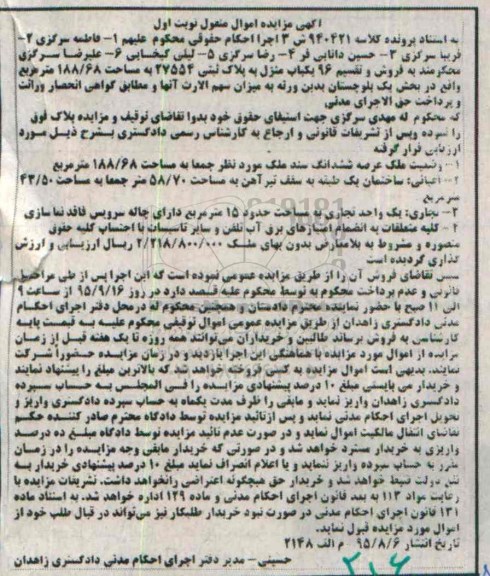 آگهی مزایده اموال منقول نوبت اول
به استناد پرونده کلاسه ۹۴۰۴۲۱ ش ۳ اجرا احکام حقوقی محکوم علیهم ۱- فاطمه سرگزی ۲-
فریبا سرگزی ۳- حسین دانایی فر ۴- رضا سرگزی ۵- لیلی کیخایی ۶- علیرضا سرگزی
محکومند به فروش و تقسیم ۹۶ یکباب منزل به پلاک ثبتی ۲۷۵۵۴ به مساحت ۱۸۸/۶۸ مترمربع
واقع در بخش یک بلوچستان بدین ورثه به میزان سهم الارث آنها و مطابق گواهی انحصار وراثت
و پرداخت حق الاجرای مدنی
که محکوم له مهدی سرگزی جهت استیفای حقوق خود بدوا تقاضای توقیف و مزایده پلاک فوق
را نموده وپس از تشریفات قانونی و ارجاع به کارشناس رسمی دادگستری بشرح ذیل مورد
ارزیابی قرار گرفته
۱- وضعیت ملک عرصه ششدانگ سند ملک مورد نظر جمعا به مساحت ۱۸۸/۶۸ مترمربع
۲- اعیانی: ساختمان یک طبقه به سقف تیرآهن به مساحت ۵۸/۷۰ متر جمعا به مساحت ۴۳/۵۰
مترمربع
۳- تجاری: یک واحد تجاری به مساحت حدود ۱۵ مترمربع دارای چاله سرویس فاقد نما سازی
۴- کلیه متعلقات به انضمام امتیازهای برق آب تلفن و سایر تاسیسات با احتساب کلیه حقوق
متصوره و مشروط به بلامعارض بدون بهای ملک ۲/۲۱۸/۸۰۰/۰۰۰ ریال ارزیابی و ارزش
گذاری گردیده است
سپس تقاضای فروش آن را از طریق مزایده عمومی نموده است که این اجرا پس از طی مراحل
قانونی و عدم پرداخت محکوم به توسط محکوم علیه قصد دارد در روز ۹۵/۹/۱۶ از ساعت ۹
الی ۱۱ صبح با حضور نماینده محترم دادستان و همچنین محکوم له درمحل دفتر اجرای احکام
مدنی دادگستری زاهدان از طریق مزایده عمومی اموال توقیفی محکوم علیه به قیمت پایه
کارشناسی به فروش برساند طالبین و خریداران می‌توانند همه روزه تا یک هفته قبل از زمان
مزایده از اموال مورد مزایده با هماهنگی این اجرا بازدید و در زمان مزایده حضورا شرکت
نمایند، بدیهی است اموال مزایده به کسی فروخته خواهد شد که بالاترین مبلغ را پیشنهاد نمایند
و خریدار می بایستی مبلغ ۱۰ درصد پیشنهادی مزایده را فی المجلس به حساب سپرده
دادگستری زاهدان واریز نماید و مابقی را ظرف مدت یکماه به حساب سپرده دادگستری واریز و
تحویل اجرای احکام مدنی نماید و پس ازتائید مزایده توسط دادگاه محترم صادر کننده حکم
تقاضای انتقال مالکیت اموال نماید و در صورت عدم تائید مزایده توسط دادگاه مبلغ ده درصد
واریزی به خریدار مسترد خواهد شد و در صورتی که خریدار مابقی وجه مزایده را در زمان
مقرر به حساب سپرده واریز ننماید و یا اعلام انصراف نماید مبلغ ۱۰ درصد پیشنهادی خریدار به
نفع دولت ضبط خواهد شد و خریدار حق هیچگونه اعتراضی رانخواهد داشت. تشریفات مزایده با
رعایت مواد ۱۱۳ به بعد قانون اجرای احکام مدنی و ماده ۱۲۹ اداره خواهد شد. به استناد ماده
۱۳۱ قانون اجرای احکام مدنی در صورت نبود خریدار طلبکار نیز می‌تواند در قبال طلب خود از
اموال مورد مزایده قبول نماید.
تاریخ انتشار ۹۵/۸/۶ م الف ۲۱۴۸
حسینی- مدیر دفتر اجرای احکام مدنی دادگستری زاهدان
۳۱۶